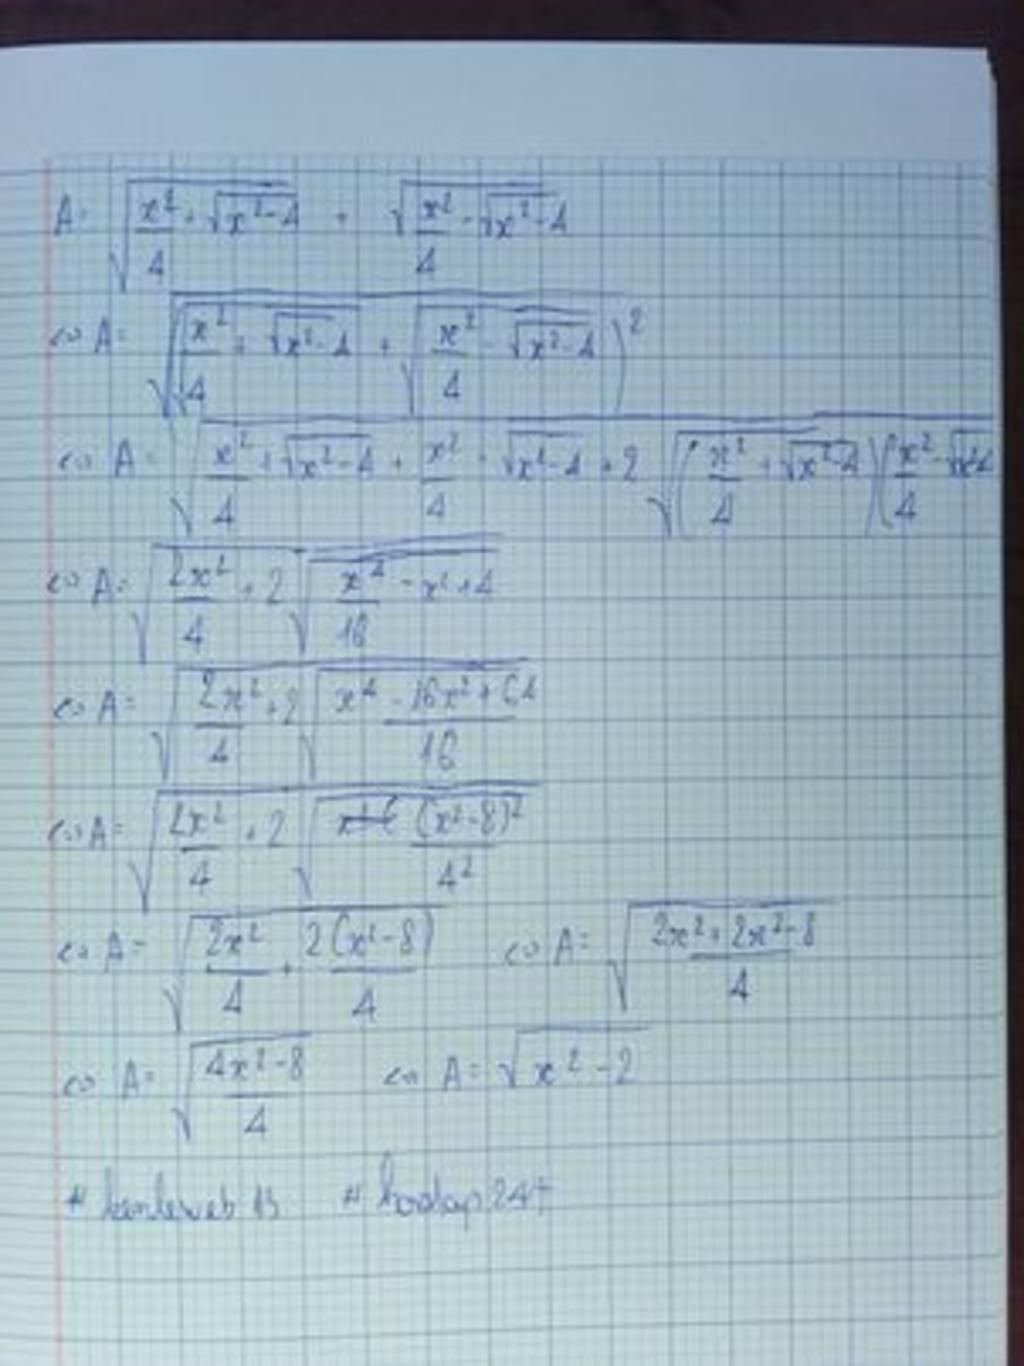 A = √(x²/4 + √(x²-4)) + √(x²/4 - √(x²-4))
<=> A = √(√(x²/4 + √(x²-4)) + √(x²/4 - √(x²-4)))²
<=> A = √(x²/4 + √(x²-4) + x²/4 - √(x²-4) + 2√((x²/4 + √(x²-4))(x²/4 - √(x²-4)
<=> A = √(2x²/4 + 2√(x⁴/16 - x²+4))
<=> A = √(2x²/4 + 2√((x⁴ - 16x² + 64)/16))
<=> A = √(2x²/4 + 2√((x²-8)²/4²))
<=> A = √(2x²/4 + 2(x²-8)/4) <=> A = √((2x²+2x²-8)/4)
<=> A = √((4x²-8)/4) <=> A = √(x²-2)
# # hoidap247